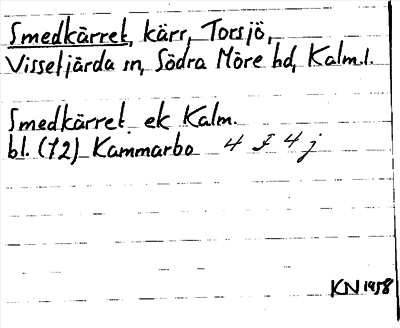 Smedkärret, kärr, Torsjö,
Vissefjärda sn, Södra Möre hd, Kalm.l.
Smedkärret ek Kalm.
bl. (72) Kammarbo 4 F 4 j
KN 1958